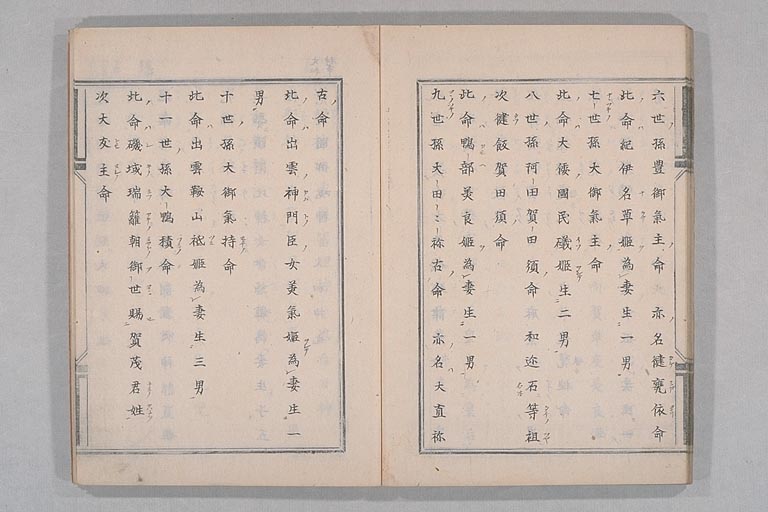 六世孫豊御氣主命 亦名健甕依命
此命紀伊名草姫為妻生一男
七世孫大御氣主命
此命大倭國民磯姫生二男
八世孫阿田賀田須命 和迩石等祖
次健飯賀田須命
此命鴨部美良姫為妻生一男
九世孫大田々祢古命 亦名大直祢
古命
此命出雲神門臣女美氣姫為妻生一
男
十世孫大御氣持命
此命出雲鞍山祇姫為妻生三男
十一世孫大鴨積命
此命磯城瑞籬朝御世賜賀茂君姓
次大友主命